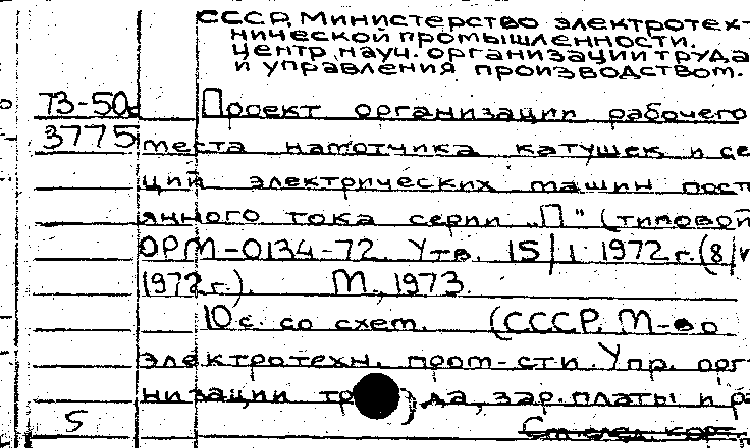 СССР, Министерство электротех-
нической промышленности.
Центр науч. организации труда
и управления производством.
73-50
Проект организации рабочего
3775
места намотчика катушек и се
ций электрических машин пост
янного тока серии „П" (типовой
ОРМ-0134-72. Утв. 15/I 1972 г. (8/V
1972 г.). М., 1973.
10 с. со схем. (СССР. М-во
электротехн. пром-сти. Упр. орг
низации тр да, зар. платы и р
5
См. след. карт.